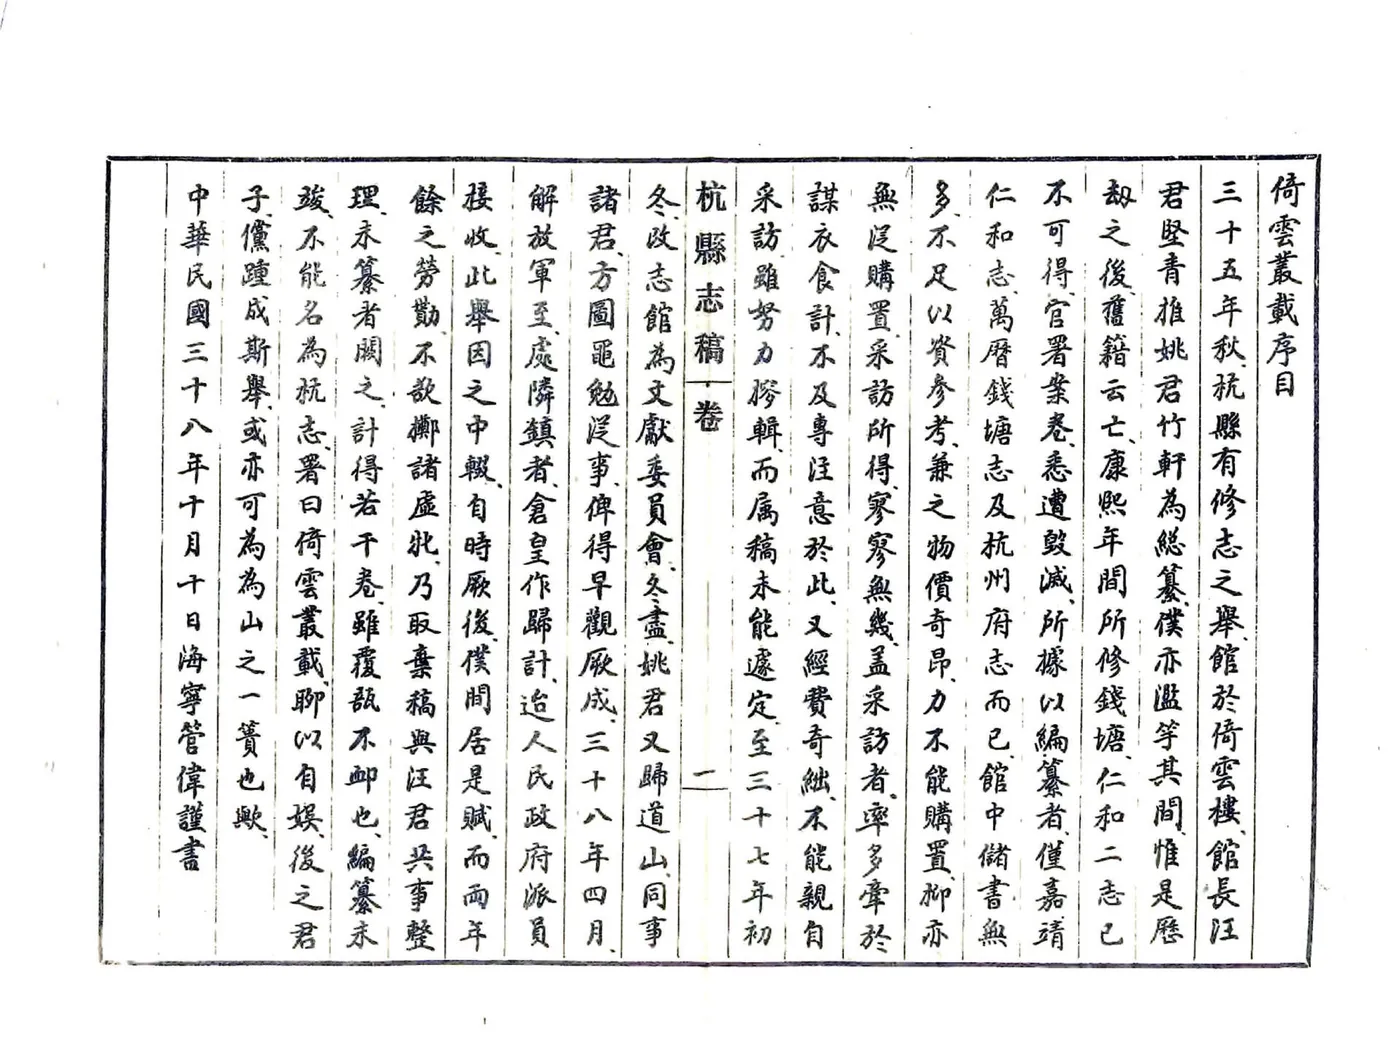 倚雲叢載序目
三十五年秋、杭縣有修志之舉、館於倚雲樓、館長汪
君堅青推姚君竹軒為總纂、僕亦濫竽其間、惟是歷
劫之後、舊籍云亡、康熙年間所修錢塘、仁和二志已
不可得、官署案卷、悉遭毀滅、所據以編纂者、僅嘉靖
仁和志、萬曆錢塘志及杭州府志而已、館中儲書無
多、不足以資參考、兼之物價奇昂、力不能購置、抑亦
無從購置、采訪所得、寥寥無幾、蓋采訪者、率多牽於
謀衣食計、不及專注意於此、又經費奇絀、不能親自
采訪、雖努力搿輯、而属稿未能遽定、至三十七年初
杭縣志稿 卷 一
冬、改志館為文獻委員會、冬盡、姚君又歸道山、同事
諸君、方圖黽勉從事、俾得早觀厥成、三十八年四月、
解放軍至、處隣鎮者、倉皇作歸計、迨人民政府派員
接收、此舉因之中輟、自時厥後、僕閒居是賦、而兩年
餘之勞勩、不欲擲諸虛牝、乃取棄稿與汪君共事整
理、未纂者闕之、計得若干卷、雖覆瓿不卹也、編纂未
竣、不能名為杭志、署曰倚雲叢載、聊以自娛、後之君
子、儻踵成斯舉、或亦可為為山之一簣也歟、
中華民國三十八年十月十日海寧管偉謹書